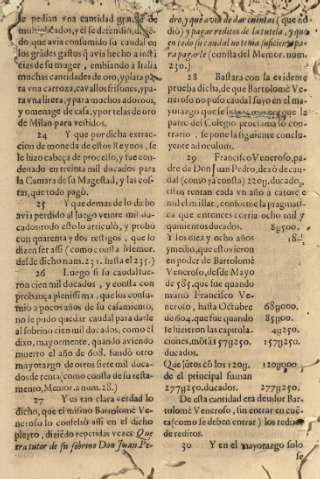 se pedian vna cantidad
multiplicados, y el se defendió,
do, que avia consumido la caudal en
los grādes gastos q̃ avia hecho a instā
cias de su mager, embiando à Italia
muchas cantidades de oro, y plata pa
ra vna carroza, cavallos frisones, y pa-
ra vna litera, y para muchos adornos,
y omenage de casa, y por telas de oro
de Milan para vestidos.
24 Y que por dicha extrac-
cion de moneda de estos Reynos, se
le hizo cabeça de processo, y fue con-
denado en treinta mil ducados para
la Camara de su Magestad, y las cos-
tas, que todo pagò.
25 Y que demas de lo dicho
avia perdido al juego veinte mil du-
cados: todo esto lo articulò, y probò
con quarenta y dos testigos, que lo
dizen ser assi (como consta Memor.
desde dicho num. 231. hasta el 235.)
26 Luego si su caudal fue-
ron cien mil ducados, y consta con
probança plenissima, que los consu-
mio a pocos años de su casamiento,
no le pudo quedar caudal para darle
al sobrino cien mil ducados, como èl
dixo, mayormente, quando aviendo
muerto el año de 608. fundò otro
mayorazgo de otros siete mil duca-
dos de renta (como consta de su testa-
mento, Memor. a num. 28.)
27 Y es tan clara verdad lo
dicho, que el mismo Bartolomè Ve-
neroso lo confessò assi en el dicho
pleyto, diziendo repetidas vezes: Que
era tutor de su sobrino Don Juan Pe-
dro, y què avia de dar cuentas (que no
diò) y pagar reditos de la tutela, y que
en todo su caudal no tenia suficiēte pa-
ra pagarle (consta del Memor. num.
230.)
28 Bastara con la evidente
prueba dicha, de que Bartolomè Ve-
neroso no puso caudal suyo en el ma-
yorazgo que
parte del Colegio proclama lo con-
trario, se pone la siguiente conclu-
yente adequatum.
29 Francisco Veneroso, pa-
dre de Don Juan Pedro, dexò de cau-
dal (como ya consta) 220y. ducados,
estos rentan cada vn año à catorze
mil el millar, conforme la pragmati-
ca que entonces corria ocho mil y
quinientos ducados. 8y500.
Y los diez y ocho años
y medio, que estuvieron
en poder de Bartolomè
Veneroso, desde Mayo
de 585. que fue quando
muriò Francisco Vene-
roso, hasta Octubre 68y000.
de 604. que fue quando 85y000.
se hizieron las capitula- 4y250.
ciones, mōtā 157y250. 157y250.
ducados.
Que jūtos cō los 120y. 120y000.
de el principal suman
277y250. ducados. 277y250.
De esta cantidad era deudor Bar-
tolomè Veneroso, sin entrar en cuē-
ta (como se deben entrar) los reditos
de reditos.
30 Y en el mayorazgo solo
se